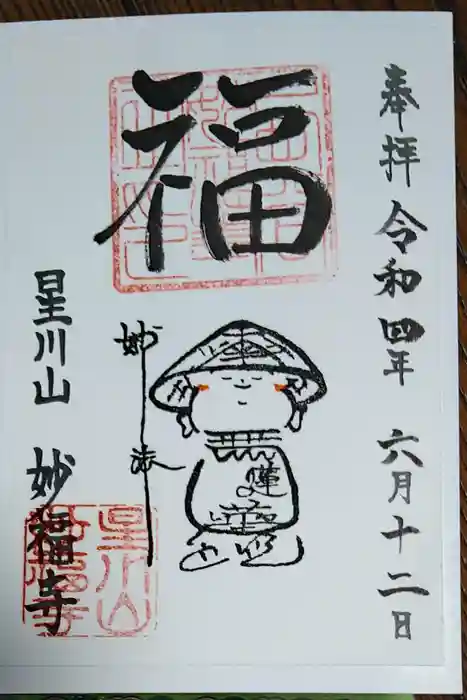 奉拝 令和四年 六月十二日
福
妙
法
蓮
星川山 妙福寺
星川山
妙福寺